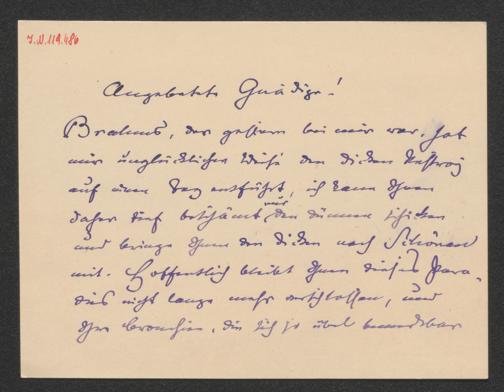 I.N. 119.486
Angebetete Gnädige!
Brahms, der gestern bei mir war, hat
mir unglücklicher Weise den dicken Nestroy
auf einen Tag entführt, ich kann Ihnen
daher tief beschämt nur den dünnen schicken
und bringe Ihnen den dicken nach Schönau
mit. Hoffentlich bleibt Ihnen dieses Para-
dies nicht lange mehr verschlossen, und
Ihre Bronchien, die sich so übel bemerkbar